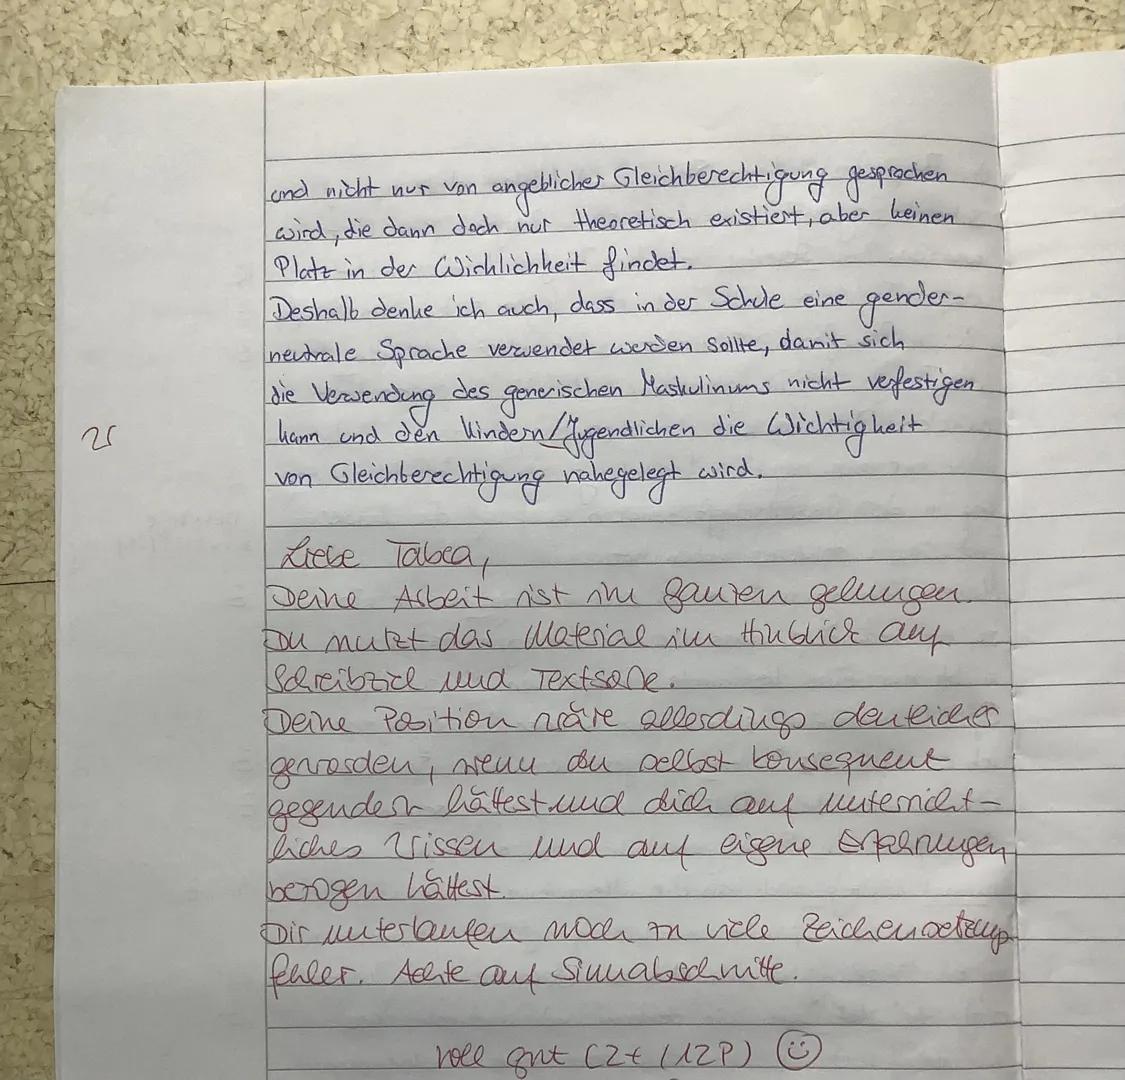 und nicht nur von angeblicher Gleichberechtigung gesprochen
wird, die dann doch nur theoretisch existiert, aber keinen
Platz in der Wirklichkeit findet.
Deshalb denke ich auch, dass in der Schule eine gender-
neutrale Sprache verwendet werden sollte, damit sich
die Verwendung des generischen Maskulinums nicht verfestigen
kann und den Kindern/Jugendlichen die Wichtigkeit
25
von Gleichberechtigung nahegelegt wird.
Liebe Tabea,
Deine Arbeit ist im Ganzen gelungen.
Du nutzt das Material im Hinblick auf
Schreibziel und Textsorte.
Deine Position wäre allerdings deutlicher
geworden, wenn du selbst konsequent
gegendert hättest und dich auf unterricht-
liches Wissen und auf eigene Erfahrungen
bezogen hättest.
Dir unterlaufen noch zu viele Zeichensetzungs
fehler. Achte auf Sinnabschnitte.
voll gut (2+ (12P)